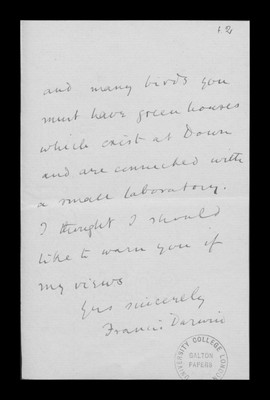 12
and many birds you
must have green houses
which exist at Down
and are connected with
a small laboratory.
I thought I should
like to warn you if
my views
Yrs sincerely
Francis Darwin
UNIVERSITY COLLEGE LONDON
GALTON
PAPERS